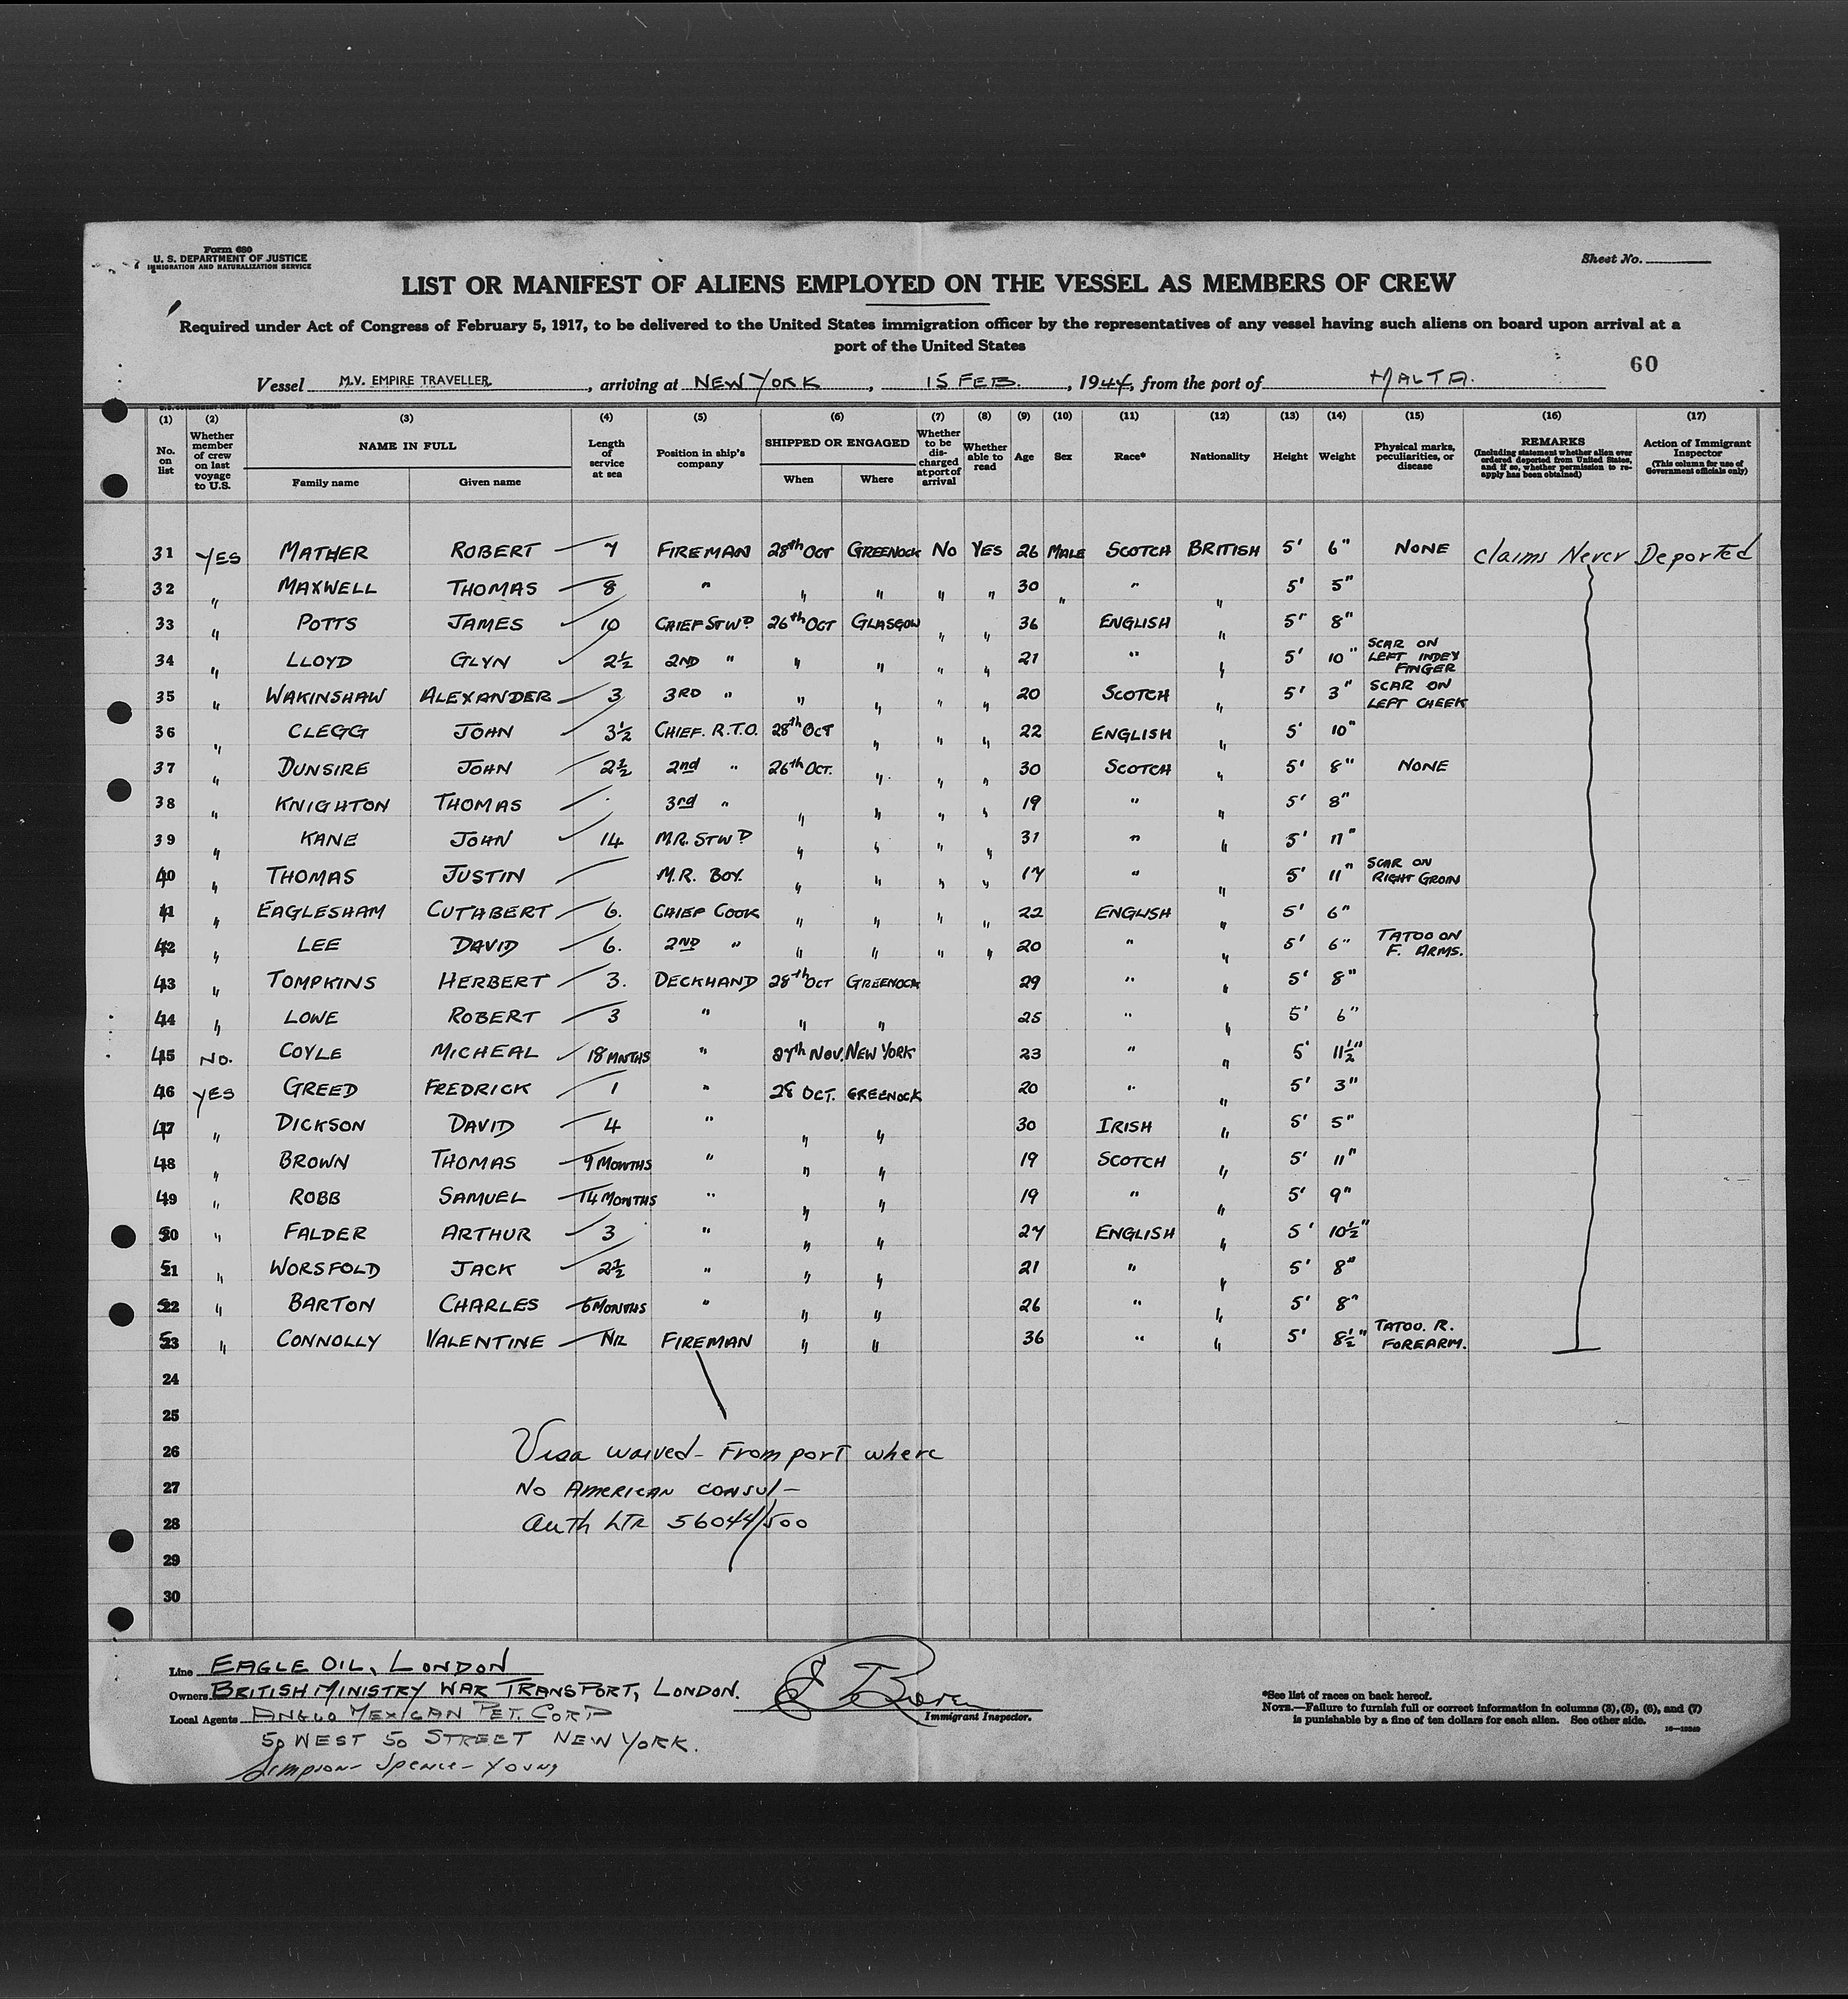 Form 680
U. S. DEPARTMENT OF JUSTICE
IMMIGRATION AND NATURALIZATION SERVICE
Sheet No.
LIST OR MANIFEST OF ALIENS EMPLOYED ON THE VESSEL AS MEMBERS OF CREW
Required under Act of Congress of February 5, 1917, to be delivered to the United States immigration officer by the representatives of any vessel having such aliens on board upon arrival at a
port of the United States
60
Vessel M.V. EMPIRE TRAVELLER, arriving at NEW YORK, 15 FEB., 1944, from the port of MALTA.
(1) (2) (3) (4) (5) (6) (7) (8) (9) (10) (11) (12) (13) (14) (15) (16) (17)
No. on list Whether member of crew on last voyage to U.S. NAME IN FULL Family name Given name Length of service at sea Position in ship's company SHIPPED OR ENGAGED When Where Whether to be discharged at port of arrival Whether able to read Age Sex Race* Nationality Height Weight Physical marks, peculiarities, or disease REMARKS (Including statement whether alien ever ordered deported from United States, and if so, whether permission to reapply has been obtained) Action of Immigrant Inspector (This column for use of Government officials only)
31 YES MATHER ROBERT 7 FIREMAN 28th OCT GREENOCK NO YES 26 MALE SCOTCH BRITISH 5' 6" NONE Claims Never Deported
32 " MAXWELL THOMAS 8 " " " " " 30 " " " 5' 5"
33 " POTTS JAMES 10 CHIEF STWD 26th OCT GLASGOW " " 36 ENGLISH " 5' 8"
34 " LLOYD GLYN 2½ 2ND " " " " " 21 " " 5' 10" SCAR ON LEFT INDEX FINGER
35 " WAKINSHAW ALEXANDER 3 3RD " " " " " 20 SCOTCH " 5' 3" SCAR ON LEFT CHEEK
36 " CLEGG JOHN 3½ CHIEF. R.T.O. 28th OCT " " " 22 ENGLISH " 5' 10"
37 " DUNSIRE JOHN 2½ 2nd " 26th OCT. " " " 30 SCOTCH " 5' 8" NONE
38 " KNIGHTON THOMAS 3rd " " " " " 19 " " 5' 8"
39 " KANE JOHN 14 M.R. STWD " " " " 31 " " 5' 11"
40 " THOMAS JUSTIN M.R. BOY. " " " " 17 " " 5' 11" SCAR ON RIGHT GROIN
41 " EAGLESHAM CUTHBERT 6. CHIEF COOK " " " " 22 ENGLISH " 5' 6"
42 " LEE DAVID 6. 2ND " " " " " 20 " " 5' 6" TATOO ON F. ARMS.
43 " TOMPKINS HERBERT 3. DECKHAND 28th OCT GREENOCK 29 " " 5' 8"
44 " LOWE ROBERT 3 " " " 25 " " 5' 6"
45 NO. COYLE MICHEAL 18 MNTHS " 27th NOV. NEW YORK 23 " " 5' 11½"
46 YES GREED FREDRICK 1 " 28 OCT. GREENOCK 20 " " 5' 3"
47 " DICKSON DAVID 4 " " " 30 IRISH " 5' 5"
48 " BROWN THOMAS 9 MONTHS " " " 19 SCOTCH " 5' 11"
49 " ROBB SAMUEL 14 MONTHS " " " 19 " " 5' 9"
50 " FALDER ARTHUR 3 " " " 27 ENGLISH " 5' 10½"
51 " WORSFOLD JACK 2½ " " " 21 " " 5' 8"
52 " BARTON CHARLES 6 MONTHS " " " 26 " " 5' 8"
53 " CONNOLLY VALENTINE NIL FIREMAN " " 36 " " 5' 8½" TATOO. R. FOREARM.
24
25
26 Visa waived - From port where
27 No American Consul -
28 Auth LTR 56044/500
29
30
Line EAGLE OIL, LONDON
Owners BRITISH MINISTRY WAR TRANSPORT, LONDON.
Local Agents ANGLO MEXICAN PET. CORP
50 WEST 50 STREET NEW YORK.
Simpson - Spence - Young
Immigrant Inspector.
*See list of races on back hereof.
NOTE.—Failure to furnish full or correct information in columns (3), (5), (6), and (7)
is punishable by a fine of ten dollars for each alien. See other side.